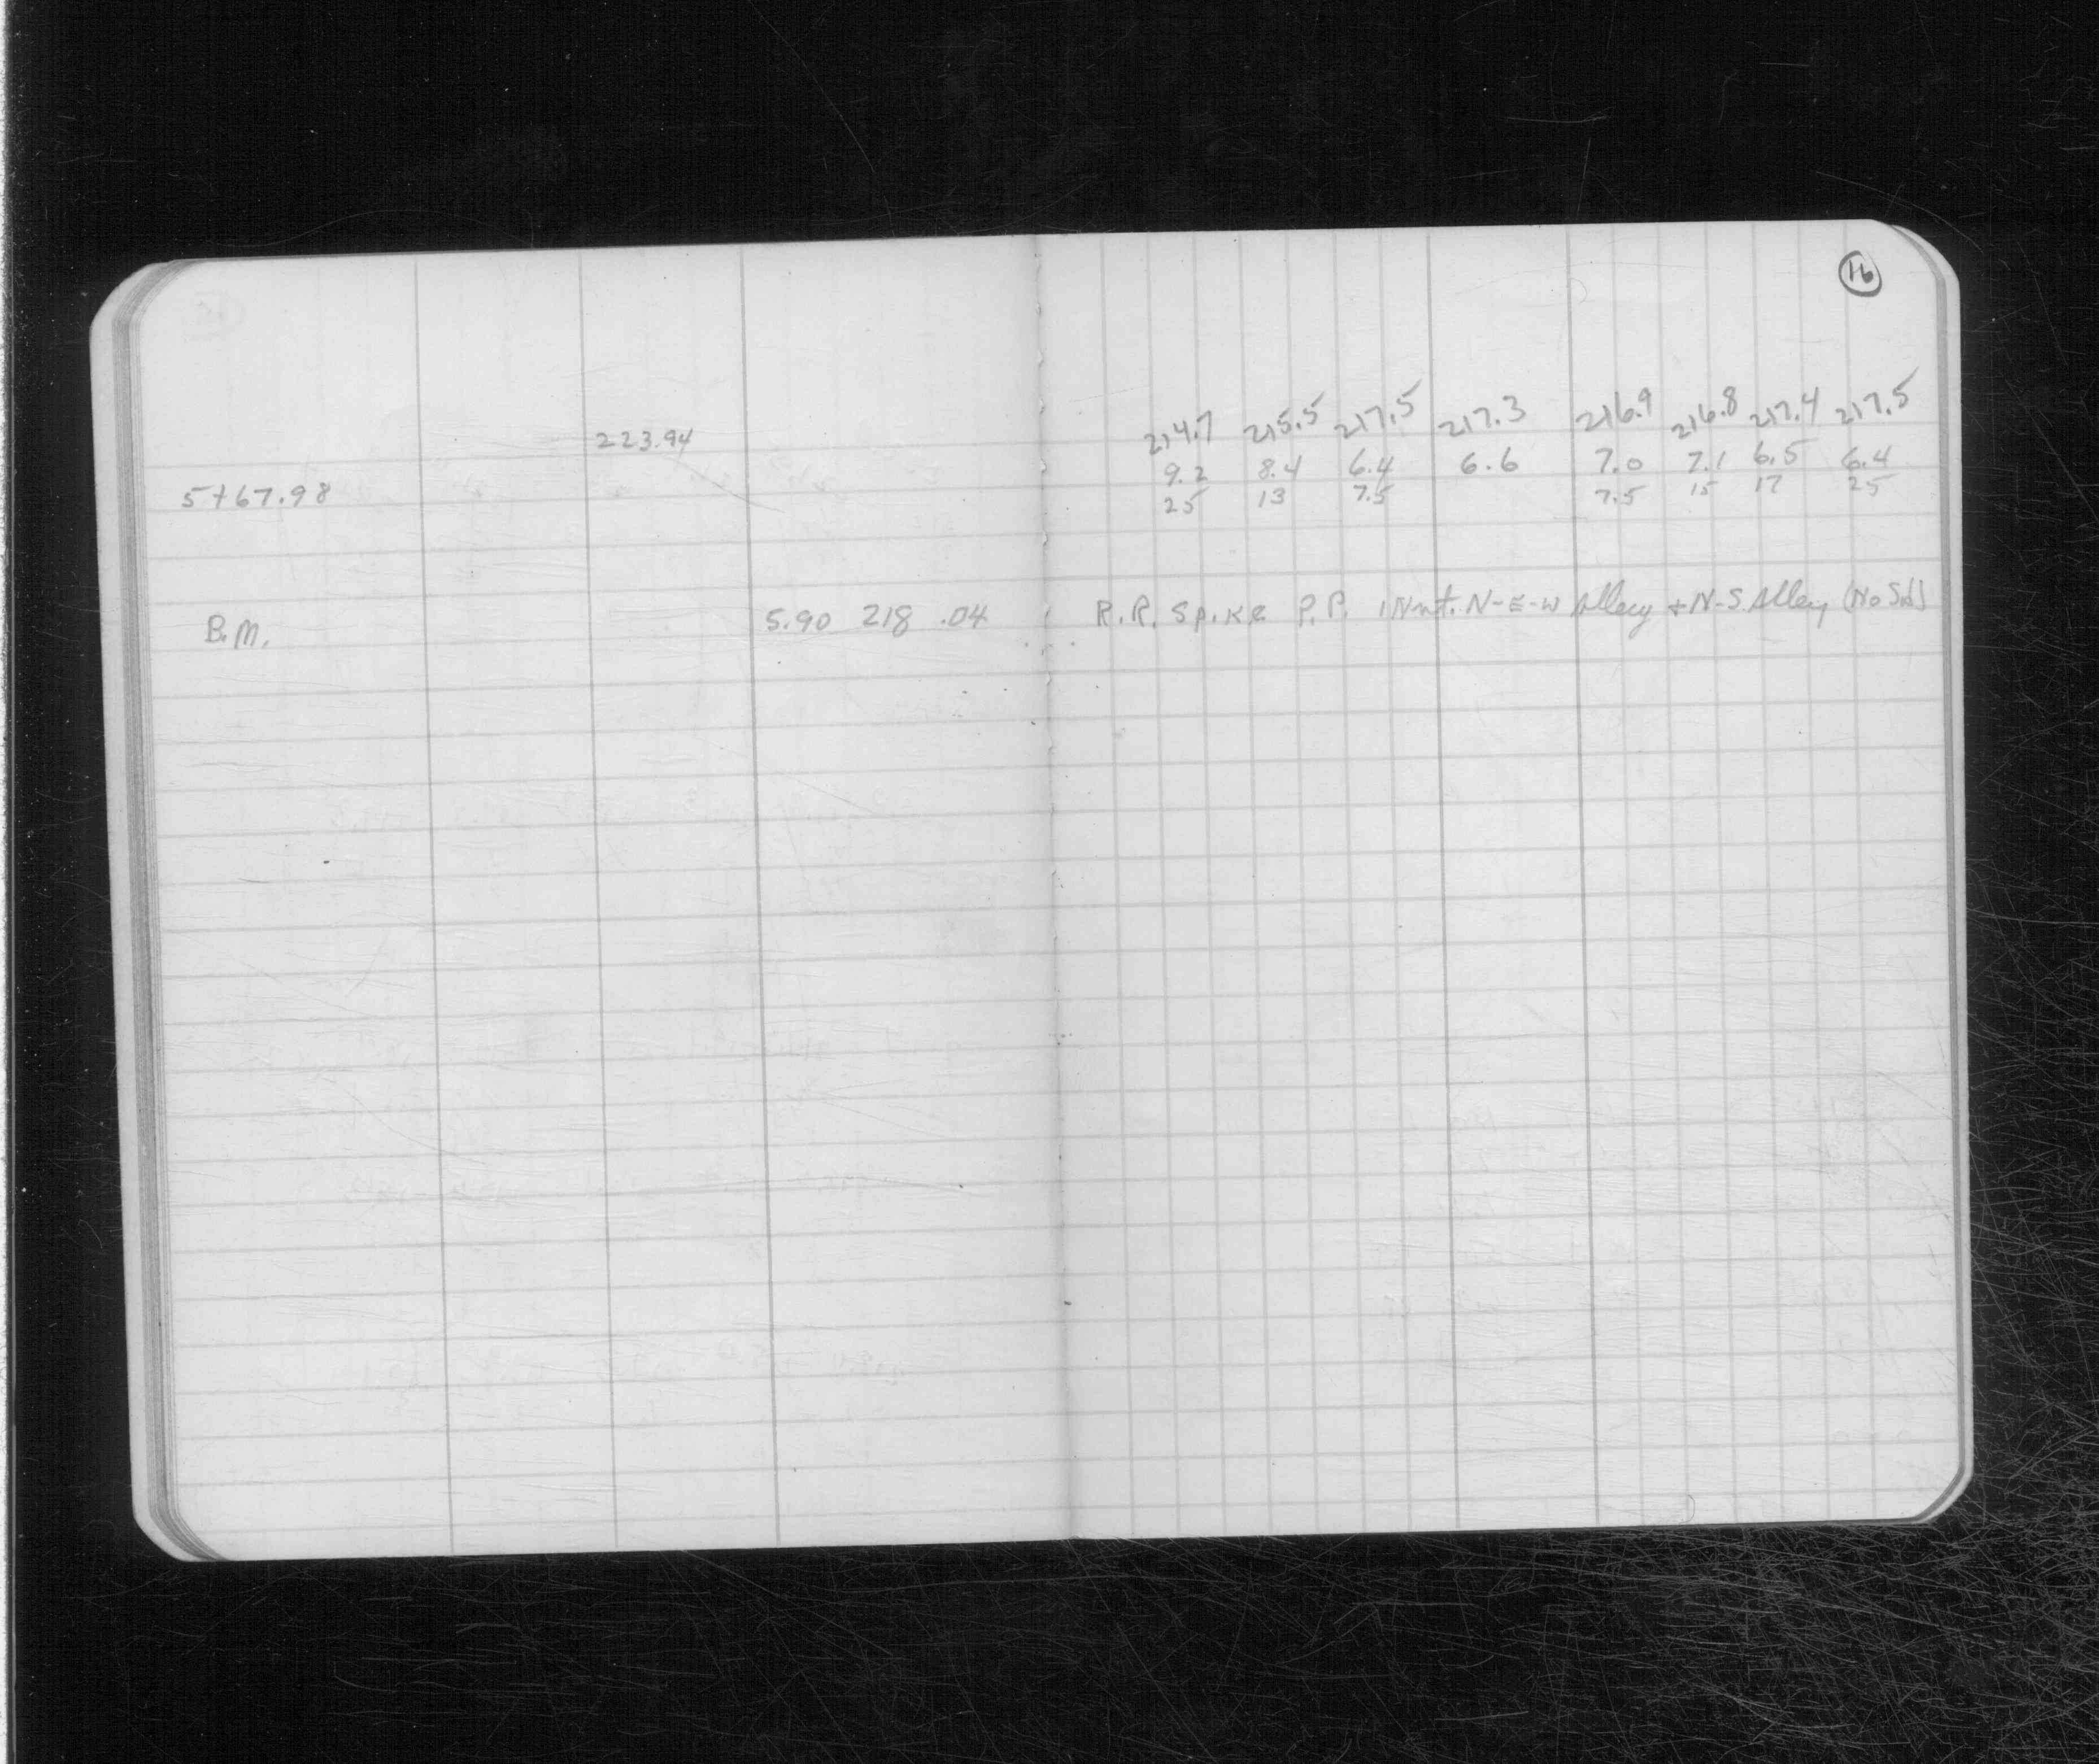 16
223.94 214.7 215.5 217.5 217.3 216.9 216.8 217.4 217.5
9.2 8.4 6.4 6.6 7.0 7.1 6.5 6.4
5+67.98 25 13 7.5 7.5 15 17 25
B.M. 5.90 218 .04 R.R. Spike P.P. Alley + N-S. Alley